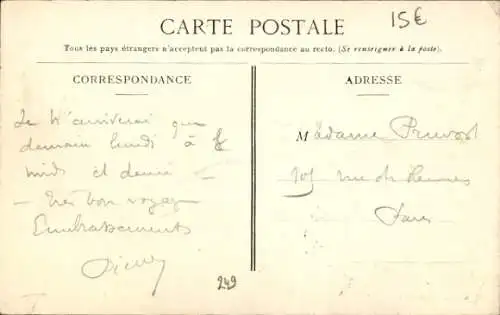 CARTE POSTALE
15€
Tous les pays étrangers n'acceptent pas la correspondance au recto. (Se renseigner à la poste).
CORRESPONDANCE
ADRESSE
Je n'arriverai que
demain lundi à
midi et demi -
- Très bon voyage
Embrassements
Pierre
249
Madame Pruvost
105 rue de Rennes
Paris